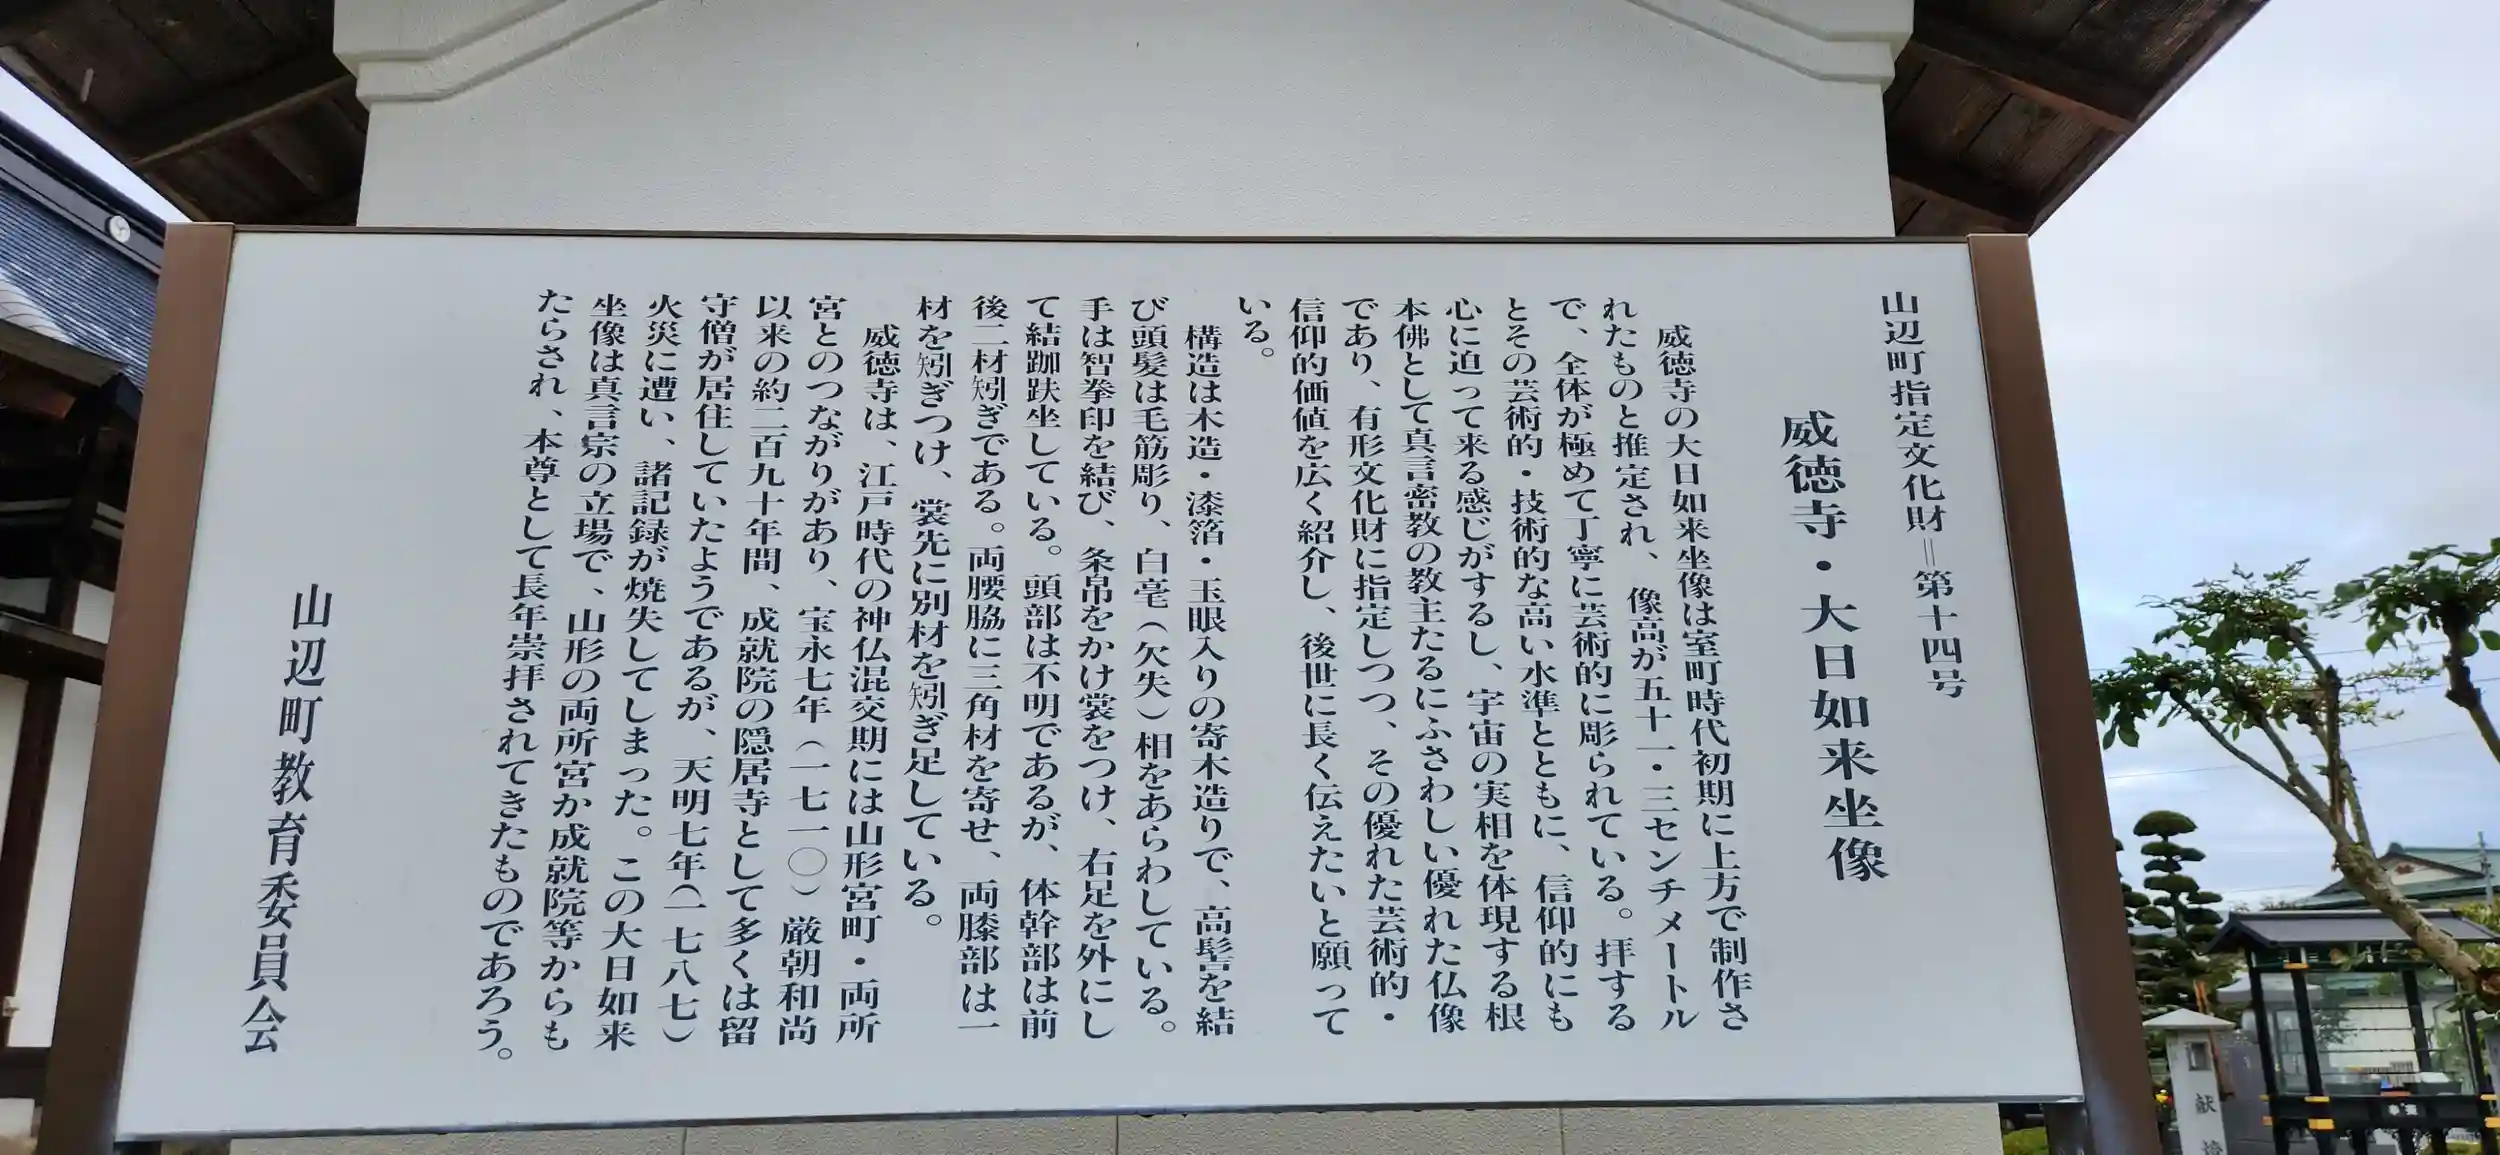 山辺町指定文化財＝第十四号
威徳寺・大日如来坐像
威徳寺の大日如来坐像は室町時代初期に上方で制作さ
れたものと推定され、像高が五十一・三センチメートル
で、全体が極めて丁寧に芸術的に彫られている。拝する
とその芸術的・技術的な高い水準とともに、信仰的にも
心に迫って来る感じがするし、宇宙の実相を体現する根
本佛として真言密教の教主たるにふさわしい優れた仏像
であり、有形文化財に指定しつつ、その優れた芸術的・
信仰的価値を広く紹介し、後世に長く伝えたいと願って
いる。
構造は木造・漆箔・玉眼入りの寄木造りで、高髻を結
び頭髪は毛筋彫り、白毫（欠失）相をあらわしている。
手は智拳印を結び、条帛をかけ裳をつけ、右足を外にし
て結跏趺坐している。頭部は不明であるが、体幹部は前
後二材矧ぎである。両腰脇に三角材を寄せ、両膝部は一
材を矧ぎつけ、裳先に別材を矧ぎ足している。
威徳寺は、江戸時代の神仏混交期には山形宮町・両所
宮とのつながりがあり、宝永七年（一七一〇）厳朝和尚
以来の約二百九十年間、成就院の隠居寺として多くは留
守僧が居住していたようであるが、天明七年（一七八七）
火災に遭い、諸記録が焼失してしまった。この大日如来
坐像は真言宗の立場で、山形の両所宮か成就院等からも
たらされ、本尊として長年崇拝されてきたものであろう。
山辺町教育委員会
献